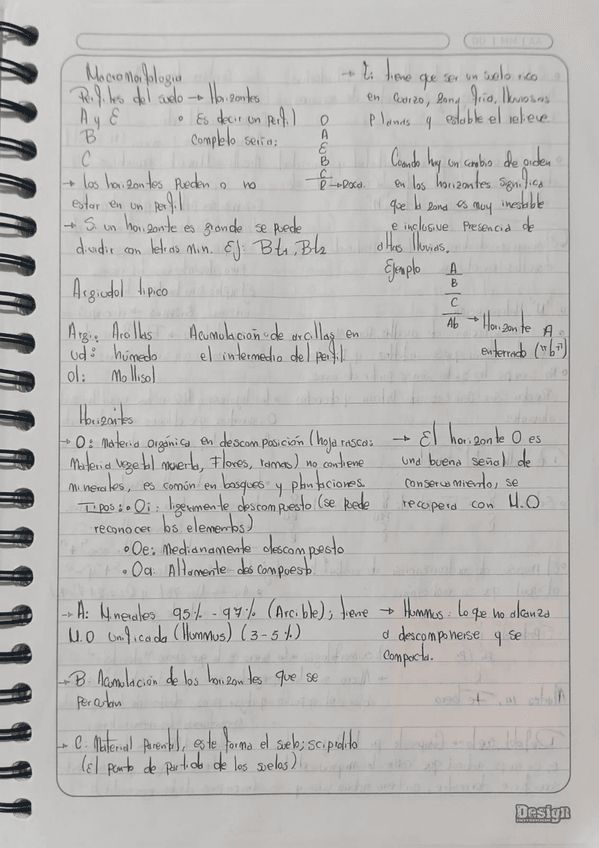 Macromorfologia
Perfiles del suelo → Horizontes
A y E
B
C
• Es decir un perfil
completo seria:
O
A
E
B
C
R → Roca
→ los horizontes pueden o no
estar en un perfil
→ Si un horizonte es grande se puede
dividir con letras min. Ej: Bt1, Bt2
→ E: tiene que ser un suelo rico
en Cuarzo, zona fria, lluviosas
Planas y estable el relieve
Cuando hay un cambio de orden
en los horizontes significa
que la zona es muy inestable
e inclusive presencia de
altas lluvias.
Ejemplo
A
B
C
Ab → Horizonte A
enterrado ("b")
Argiudol tipico
Argi: Arcillas
ud: húmedo
Ol: Mollisol
Acumulación de arcillas en
el intermedio del perfil
Horizontes
→ O: Materia Orgánica en descomposición (hojarasca:
Materia vegetal muerta, Flores, ramas) no contiene
minerales, es común en bosques y plantaciones.
Tipos: • Oi: ligeramente descompuesto (se puede
reconocer los elementos)
• Oe: Medianamente descompuesto
• Oa: Altamente descompuesto
→ El horizonte O es
una buena señal de
conservamiento, se
recupera con M.O
→ A: Minerales 95% - 97% (Arcible); tiene
M.O unificada (Hummus) (3-5%)
→ Hummus: Lo que no alcanza
a descomponerse y se
compacta.
→ B Acumulación de los horizontes que se
→ C: Material parental, este forma el suelo;
(El punto de partida de los suelos)
Design